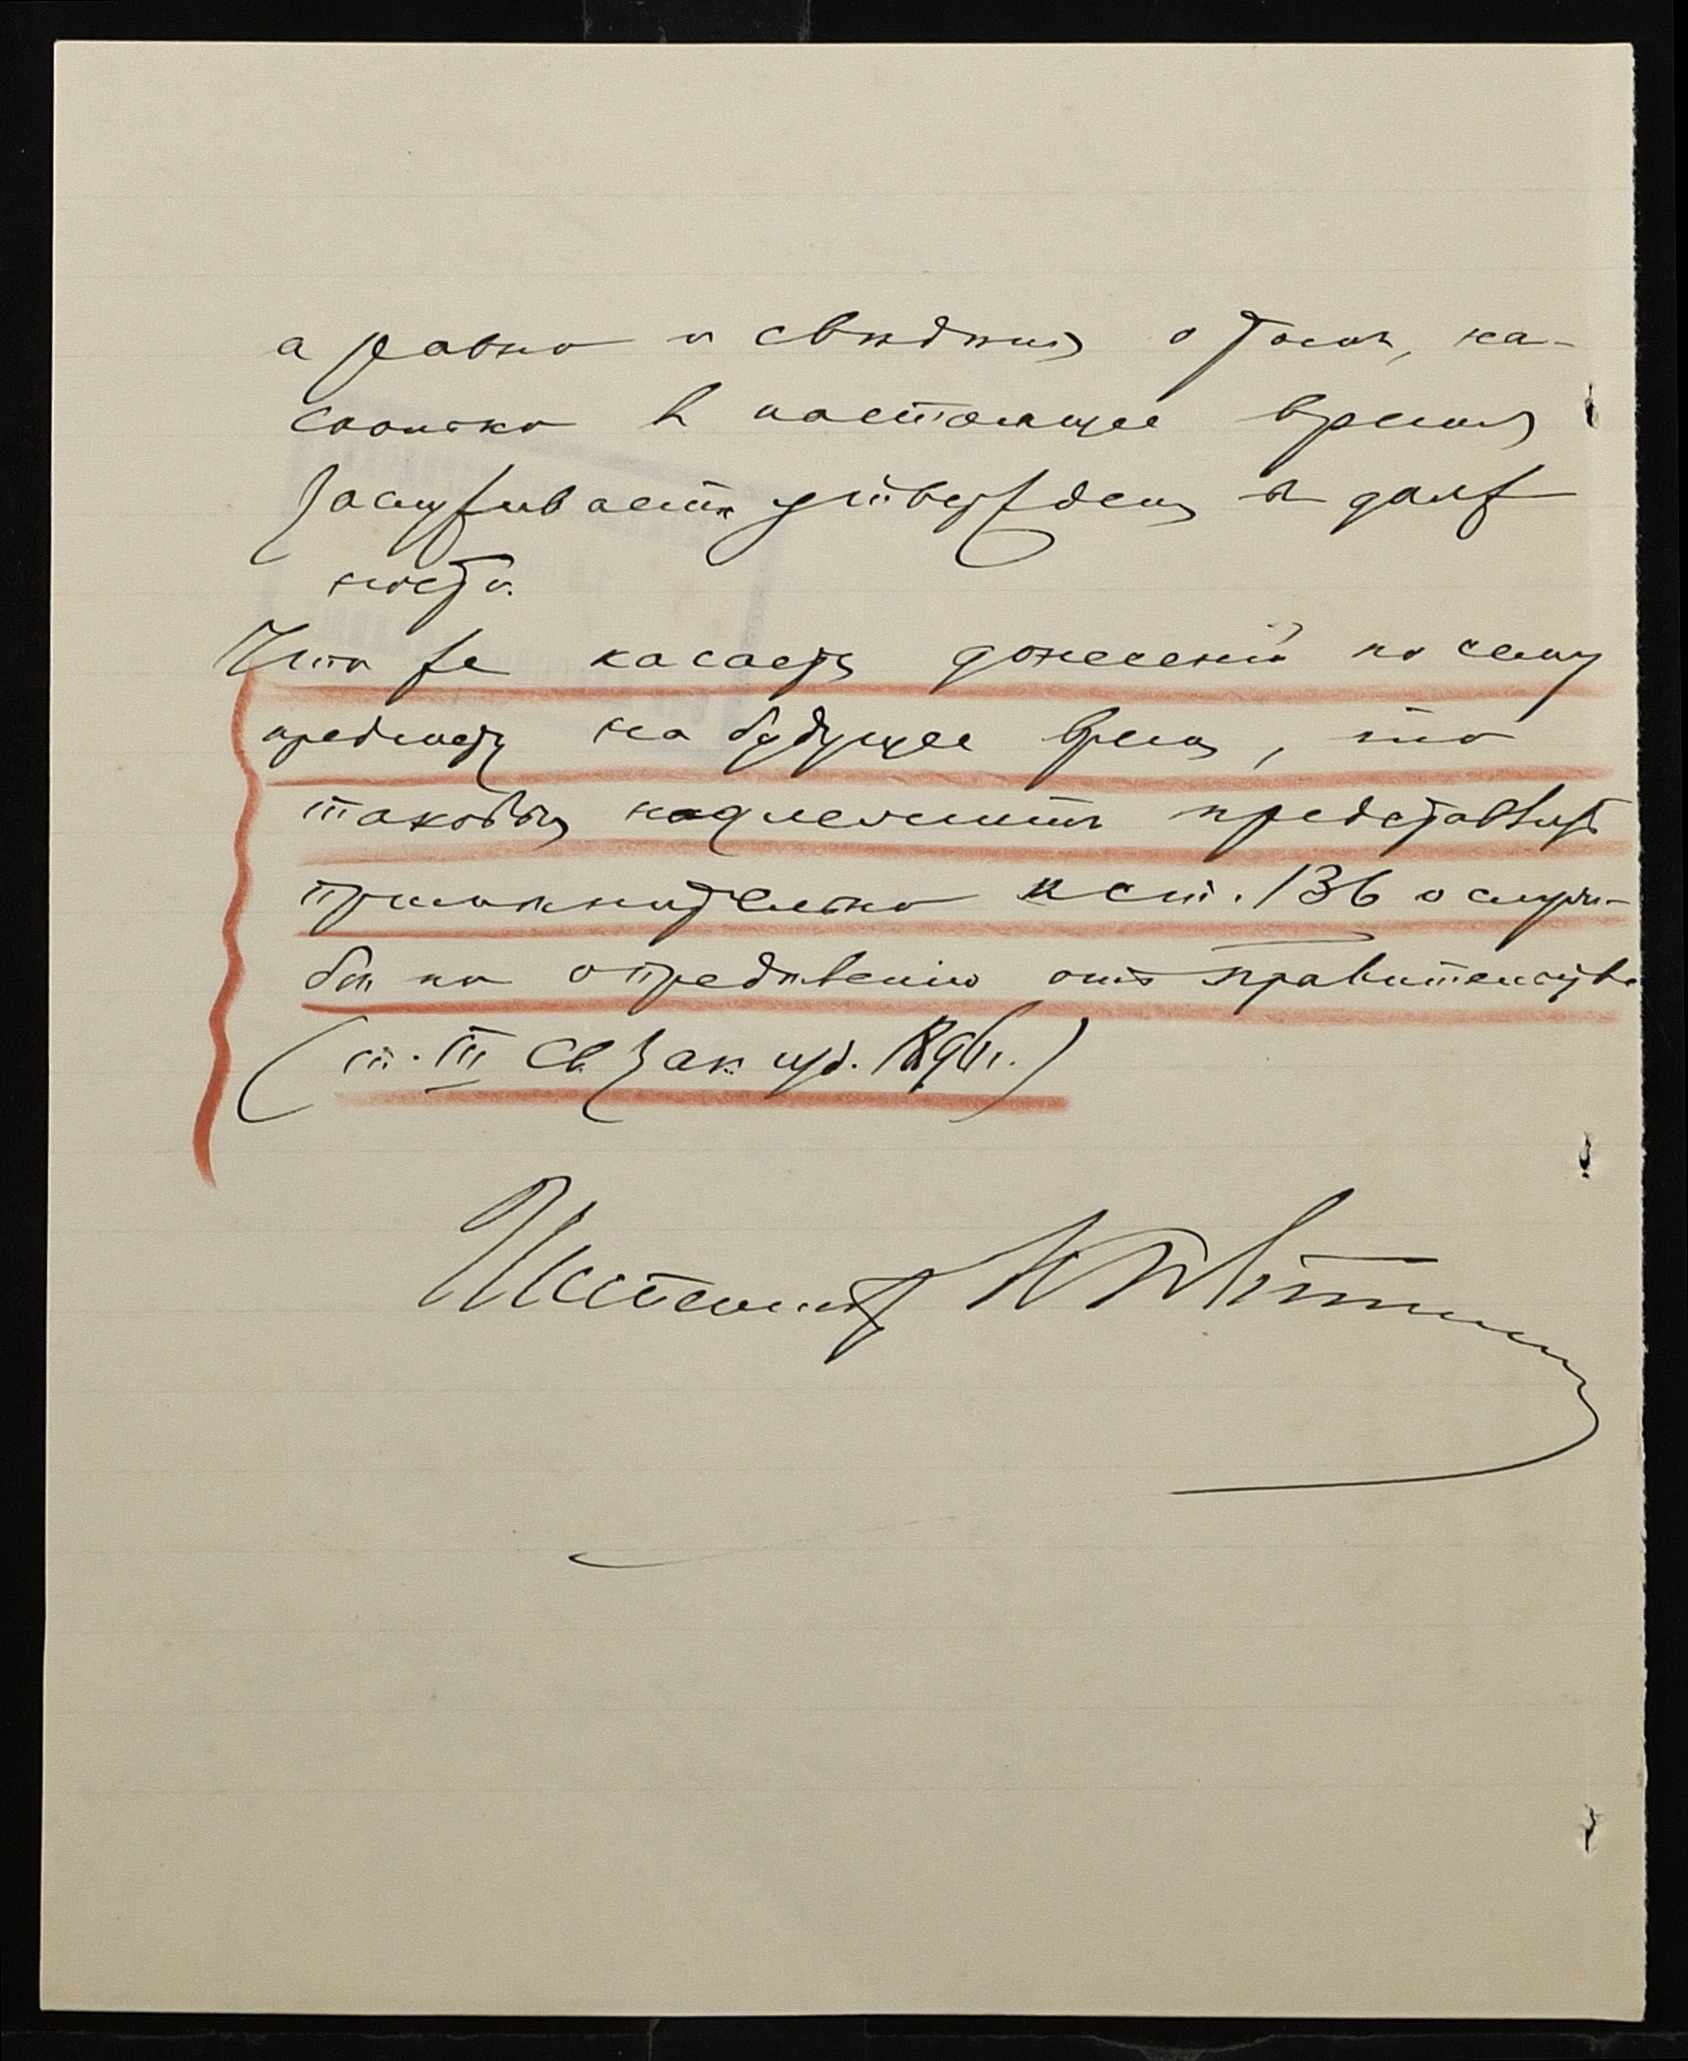 а равно и свѣдѣнія о томъ, на-
сколько въ настоящее время
заслуживаетъ утвержденія въ долж
ности.
Что же касается донесеній по сему
предмету на будущее время, то
таковыя надлежитъ представлять
примѣнительно къ ст. 136 о служ-
бѣ по опредѣленію отъ правительства
(т. III Св. Зак. изд. 1896 г.)